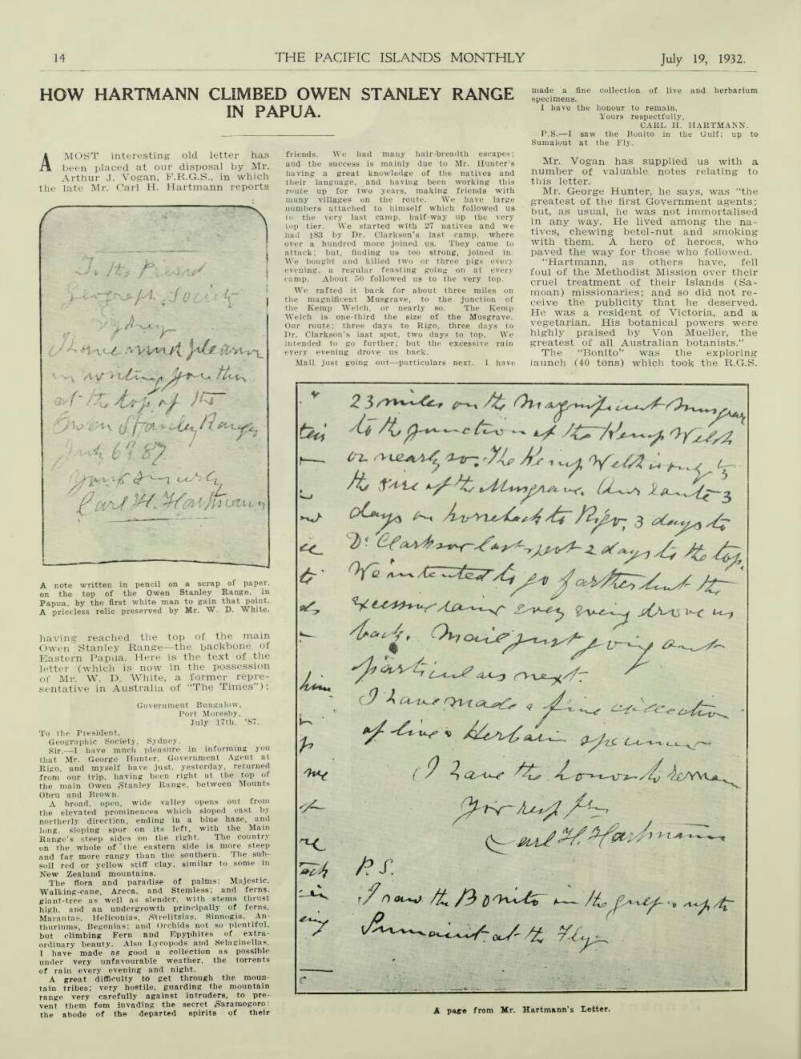 14
THE PACIFIC ISLANDS MONTHLY
July 19, 1932.
HOW HARTMANN CLIMBED OWEN STANLEY RANGE
IN PAPUA.
A MOST interesting old letter has
been placed at our disposal by Mr.
Arthur J. Vogan, F.R.G.S., in which
the late Mr. Carl H. Hartmann reports
To the Presid
Geograph. Society
Sydney
I have much pleasure
in writing you this
at the top of the
Owen Stanley Ranges
87
yours sincerely
Carl H. Hartmann
A note written in pencil on a scrap of paper,
on the top of the Owen Stanley Range, in
Papua, by the first white man to gain that point.
A priceless relic preserved by Mr. W. D. White.
having reached the top of the main
Owen Stanley Range—the backbone of
Eastern Papua. Here is the text of the
letter (which is now in the possession
of Mr. W. D. White, a former repre-
sentative in Australia of "The Times"):
Government Bungalow,
Port Moresby,
July 17th, '87.
To the President,
Geographic Society, Sydney.
Sir.—I have much pleasure in informing you
that Mr. George Hunter, Government Agent at
Rigo, and myself have just, yesterday, returned
from our trip, having been right at the top of
the main Owen Stanley Range, between Mounts
Obru and Brown.
A broad, open, wide valley opens out from
the elevated prominences which sloped east by
northerly direction, ending in a blue haze, and
long, sloping spur on its left, with the Main
Range's steep sides on the right. The country
on the whole of the eastern side is more steep
and far more rangy than the southern. The sub-
soil red or yellow stiff clay, similar to some in
New Zealand mountains.
The flora and paradise of palms: Majestic,
Walking-cane, Areca, and Stemless; and ferns,
giant-tree as well as slender, with stems thrust
high, and an undergrowth principally of ferns,
Marantas, Heliconias, Strelitzias, Sinnogia, An-
thuriums, Begonias; and Orchids not so plentiful,
but climbing Fern and Epyphites of extra-
ordinary beauty. Also Lycopods and Selaginellas.
I have made as good a collection as possible
under very unfavourable weather, the torrents
of rain every evening and night.
A great difficulty to get through the moun-
tain tribes; very hostile, guarding the mountain
range very carefully against intruders, to pre-
vent them fom invading the secret Saramogoro:
the abode of the departed spirits of their
friends. We had many hair-breadth escapes;
and the success is mainly due to Mr. Hunter's
having a great knowledge of the natives and
their language, and having been working this
route up for two years, making friends with
many villages on the route. We have large
numbers attached to himself which followed us
to the very last camp, half-way up the very
top tier. We started with 27 natives and we
had 183 by Dr. Clarkson's last camp, where
over a hundred more joined us. They came to
attack; but, finding us too strong, joined in.
We bought and killed two or three pigs every
evening, a regular feasting going on at every
camp. About 50 followed us to the very top.
We rafted it back for about three miles on
the magnificent Musgrave, to the junction of
the Kemp Welch, or nearly so. The Kemp
Welch is one-third the size of the Musgrave.
Our route: three days to Rigo, three days to
Dr. Clarkson's last spot, two days to top. We
intended to go further; but the excessive rain
every evening drove us back.
Mail just going out—particulars next. I have
made a fine collection of live and herbarium
specimens.
I have the honour to remain,
Yours respectfully,
CARL H. HARTMANN.
P.S.—I saw the Bonito in the Gulf; up to
Sumaiout at the Fly.
Mr. Vogan has supplied us with a
number of valuable notes relating to
this letter.
Mr. George Hunter, he says, was "the
greatest of the first Government agents;
but, as usual, he was not immortalised
in any way. He lived among the na-
tives, chewing betel-nut and smoking
with them. A hero of heroes, who
paved the way for those who followed.
"Hartmann, as others have, fell
foul of the Methodist Mission over their
cruel treatment of their Islands (Sa-
moan) missionaries; and so did not re-
ceive the publicity that he deserved.
He was a resident of Victoria, and a
vegetarian. His botanical powers were
highly praised by Von Mueller, the
greatest of all Australian botanists."
The "Bonito" was the exploring
launch (40 tons) which took the R.G.S.
23 miles on the Magnificent Musgrav
to the junction of the Kemp Welch
or nearly so. The Kemp Welch is only 1/3
the size of the Musgrave. Our route 3
days on horseback to Rigo, 3 days to
Dr. Clarkson last spot 2 days to the top.
We intented to go farther but the
excessive rains every evening drove us
back. Mail just going out
particulars next.
I have made a fine collection
of live & Herbarin specimens
I have the honor to remain
Carl H. Hartmann
P.S.
I saw the Bonito in the gulf & up to
Sumaiout at the Fly
A page from Mr. Hartmann's Letter.